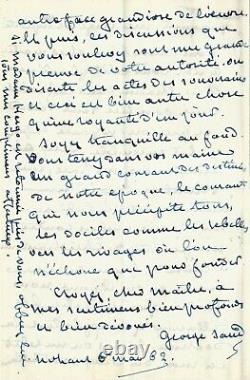 autre face grandiose de l'œuvre
Et puis, ces discussions que
vous soulevez sont une grande
preuve de votre autorité. on
discute les actes des souverains
et ceci est bien autre chose
qu'une royauté d'un jour.
Soyez tranquille au fond
Vous tenez dans vos mains
un grand courant des destinées
de notre époque, le courant
qui nous précipite tous,
les dociles comme les rebelles
vers les rivages où l'on
n'échoue que pour fonder
Croyez, cher maître, à
mes sentimens bien profonds
et bien dévoués.
George Sand
Nohant 6 mai 62.
Si Madame Hugo est retournée près de vous, offrez lui
tous mes complimens affectueux.